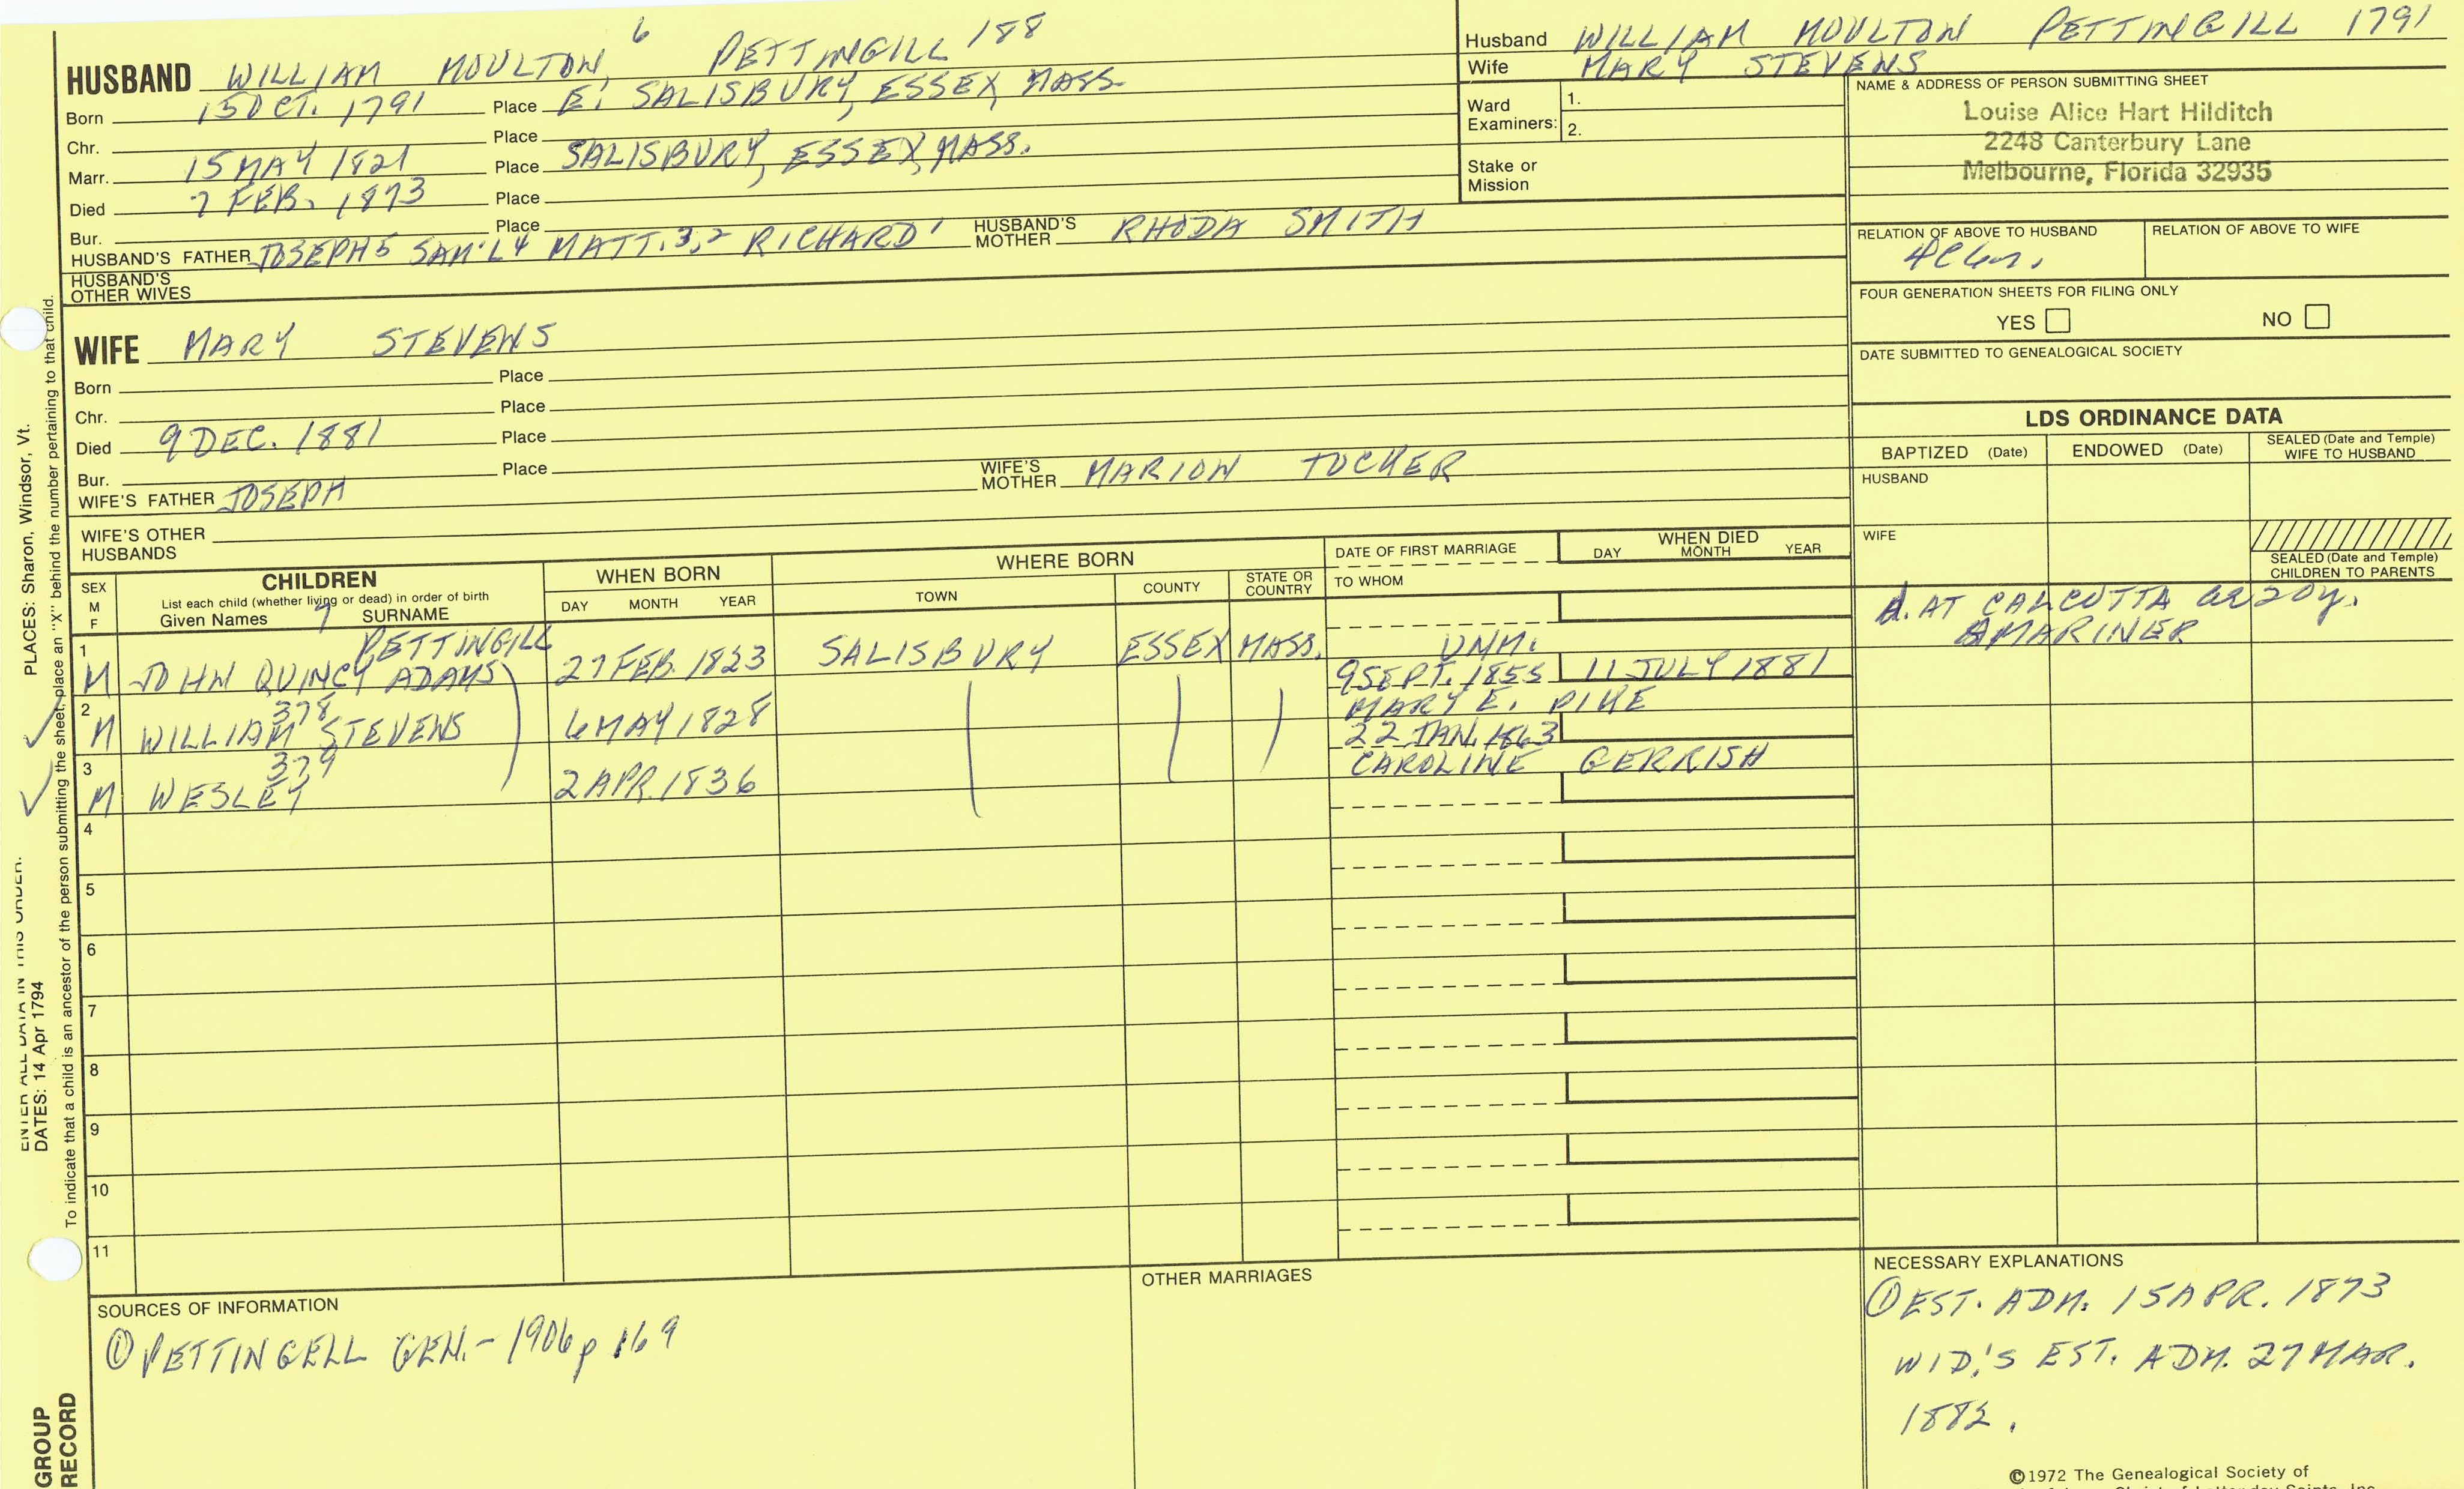 HUSBAND WILLIAM MOULTON 6 PETTINGILL 188
Born 15 OCT. 1791 Place E. SALISBURY, ESSEX, MASS.
Chr. Place
Marr. 15 MAY 1821 Place SALISBURY, ESSEX, MASS.
Died 7 FEB. 1873 Place
Bur. Place
HUSBAND'S FATHER JOSEPH 5 SAM'L 4 MATT. 3,2 RICHARD 1 HUSBAND'S MOTHER RHODA SMITH
HUSBAND'S OTHER WIVES
Husband WILLIAM MOULTON PETTINGILL 1791
Wife MARY STEVENS
Ward Examiners: 1.
2.
Stake or Mission
NAME & ADDRESS OF PERSON SUBMITTING SHEET
Louise Alice Hart Hilditch
2248 Canterbury Lane
Melbourne, Florida 32935
RELATION OF ABOVE TO HUSBAND RELATION OF ABOVE TO WIFE
FOUR GENERATION SHEETS FOR FILING ONLY
YES NO
DATE SUBMITTED TO GENEALOGICAL SOCIETY
WIFE MARY STEVENS
Born Place
Chr. Place
Died 9 DEC. 1881 Place
Bur. Place
WIFE'S FATHER JOSEPH WIFE'S MOTHER MARION TUCKER
WIFE'S OTHER HUSBANDS
LDS ORDINANCE DATA
BAPTIZED (Date) ENDOWED (Date) SEALED (Date and Temple) WIFE TO HUSBAND
HUSBAND
WIFE
SEALED (Date and Temple) CHILDREN TO PARENTS
SEX M F
CHILDREN
List each child (whether living or dead) in order of birth
Given Names 7 SURNAME
WHEN BORN
DAY MONTH YEAR
WHERE BORN
TOWN COUNTY STATE OR COUNTRY
DATE OF FIRST MARRIAGE
TO WHOM
WHEN DIED
DAY MONTH YEAR
PETTINGILL
1 M JOHN QUINCY ADAMS 27 FEB. 1823 SALISBURY ESSEX MASS. UNM.
d. AT CALCUTTA ae 20y.
A MARINER
9 SEPT. 1855 11 JULY 1881
378
2 M WILLIAM STEVENS 6 MAY 1828 MARY E. PIKE
22 JAN. 1863
379
3 M WESLEY 2 APR. 1836 CAROLINE GERRISH
4
5
6
7
8
9
10
11
SOURCES OF INFORMATION
① PETTINGELL GEN. - 1906 p 169
OTHER MARRIAGES
NECESSARY EXPLANATIONS
① EST. ADM. 15 APR. 1873
WID.'S EST. ADM. 27 MAR.
1882.
©1972 The Genealogical Society of
PLACES: Sharon, Windsor, Vt.
ENTER ALL DATA IN THIS ORDER:
DATES: 14 Apr 1794
To indicate that a child is an ancestor of the person submitting the sheet, place an "X" behind the number pertaining to that child.
GROUP
RECORD